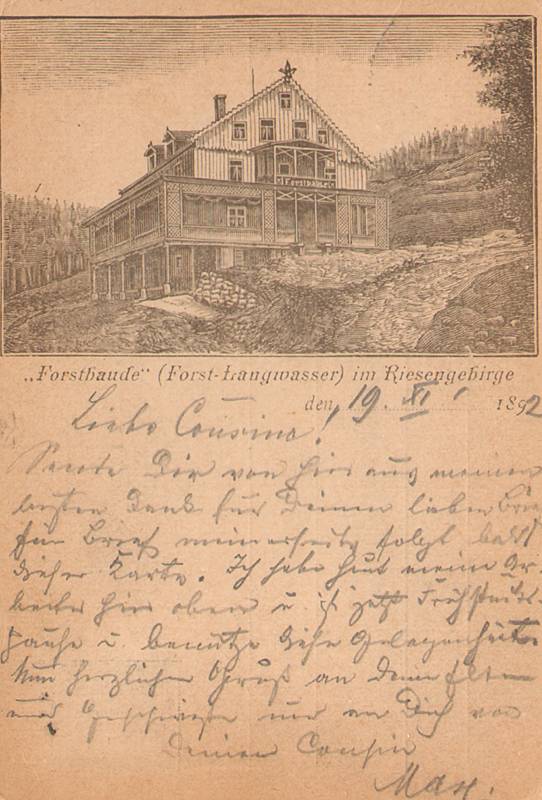 Forstbaude
„Forstbaude“ (Forst-Langwasser) im Riesengebirge
den 19. XI. 1892
Liebe Cousine!
Sende Dir von hier aus meinen
besten Dank für Deinen lieben Brief
Ein Brief meinerseits folgt bald
dieser Karte. Ich habe heut meine Ar-
beiter hier oben u. ist jetzt Frühstücks-
pause u. benutze diese Gelegenheit.
Nun herzlichen Gruß an Deine Eltern
und Geschwister und an Dich von
Deinem Cousin
Max.